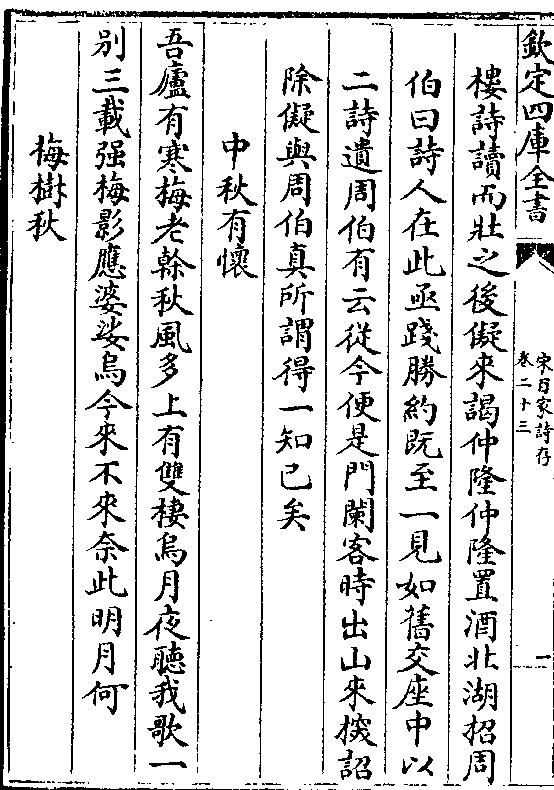 欽定四庫全書
宋百家詩存
卷二十三
一
樓詩讀而壯之後儗來謁仲隆仲隆置酒北湖招周
伯曰詩人在此亟踐勝約既至一見如舊交座中以
二詩遺周伯有云從今便是門闌客時出山來掞詔
除儗與周伯真所謂得一知己矣
中秋有懷
吾廬有寒梅老幹秋風多上有雙棲烏月夜聽我歌一
别三載强梅影應婆娑烏今來不來奈此明月何
梅樹秋